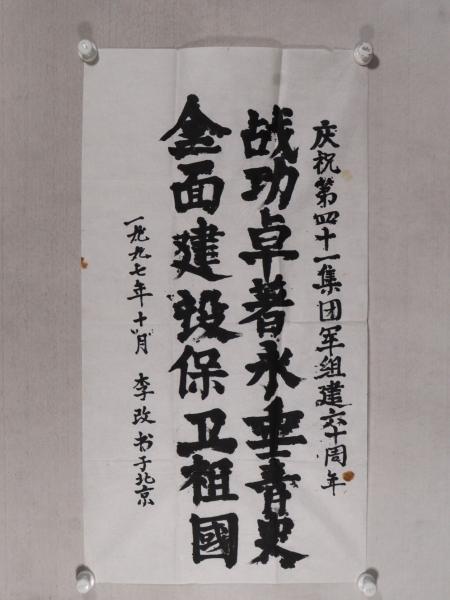 庆祝第四十一集团军组建六十周年
战功卓著永垂青史
全面建设保卫祖國
一九九七年十月 李改书于北京